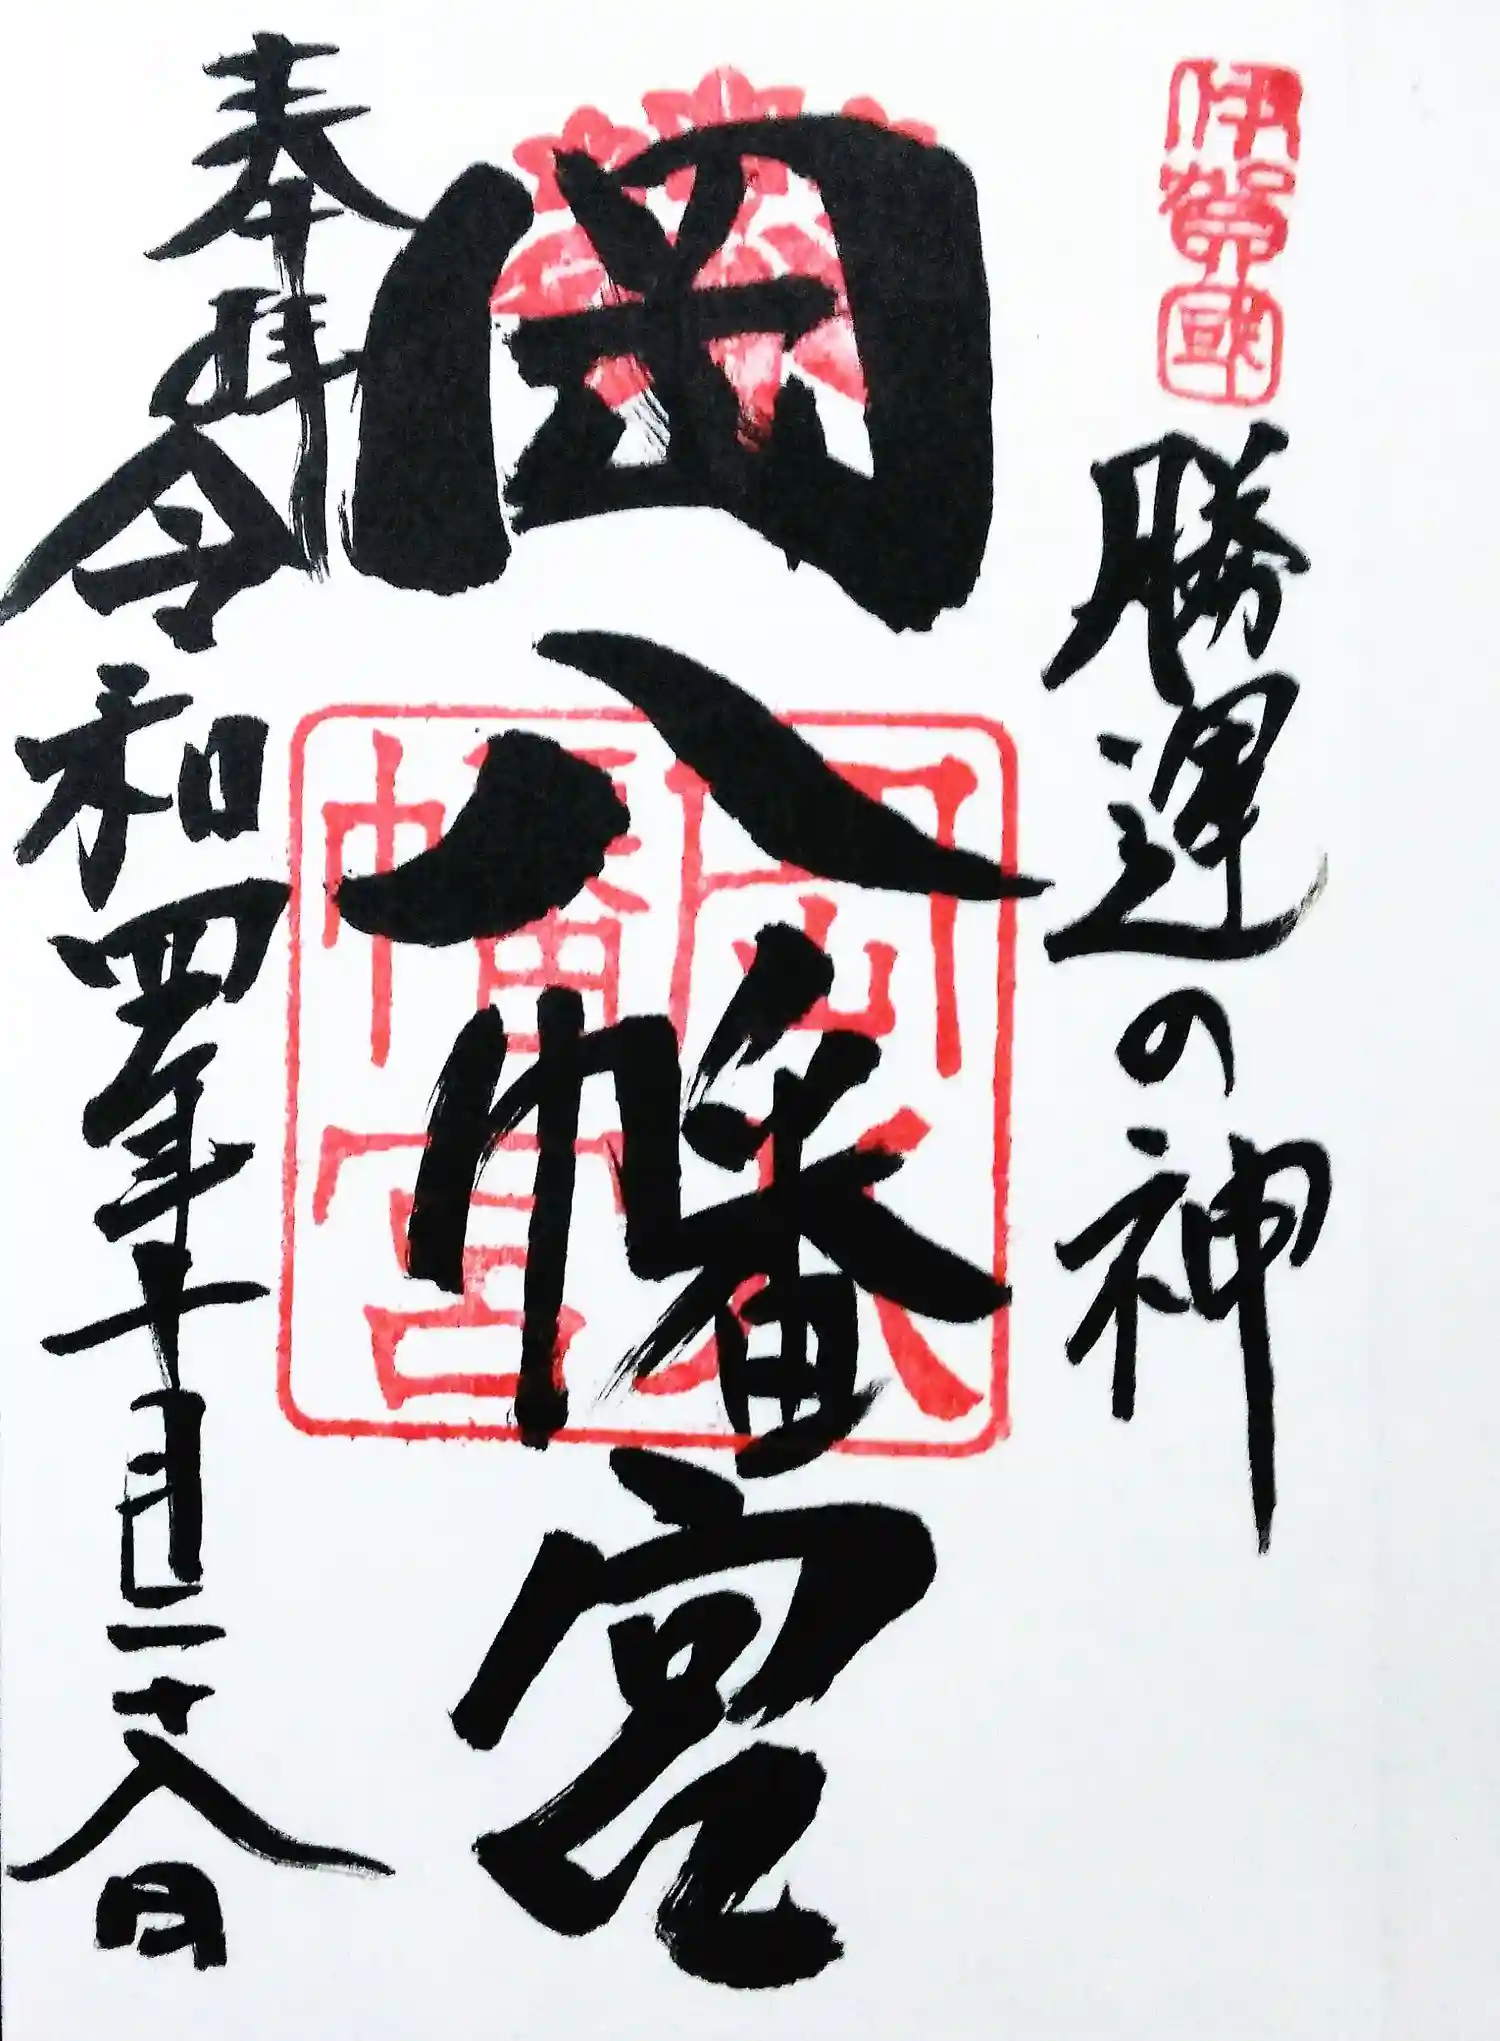 伊賀國
勝運の神
岡八幡宮
岡八幡宮
奉拝令和四年十月二十八日